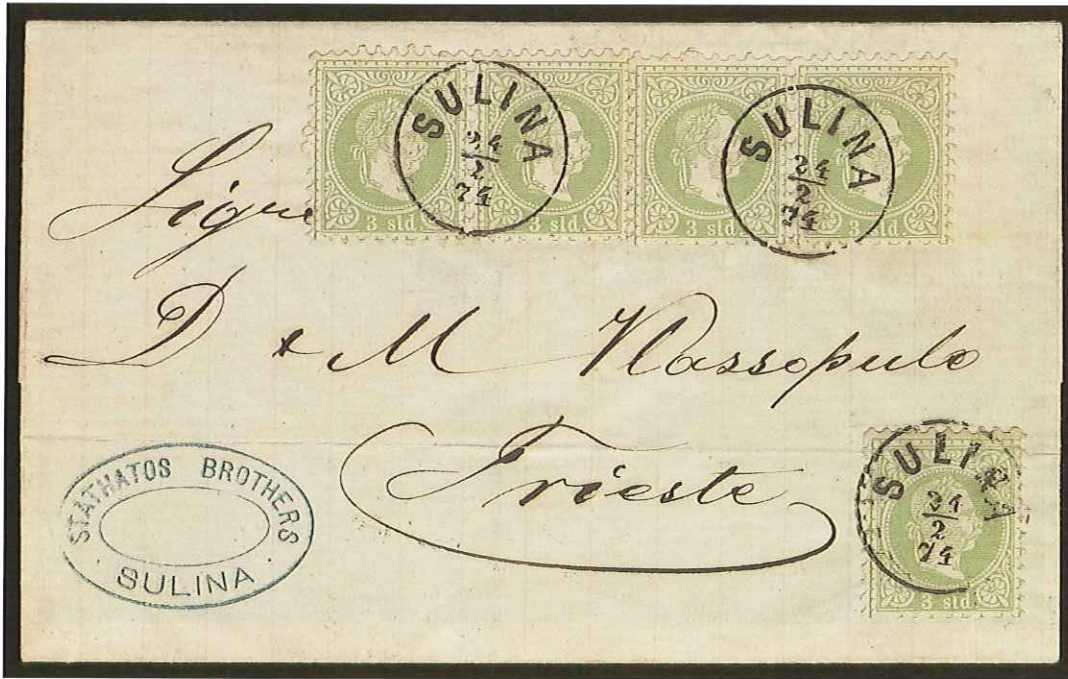 3 sld. 3 sld. 3 sld. 3 sld.
SULINA
24
2
74
SULINA
24
2
74
D & M Vlassopulo
Trieste
STATHATOS BROTHERS
SULINA
SULINA
24
2
74
3 sld.